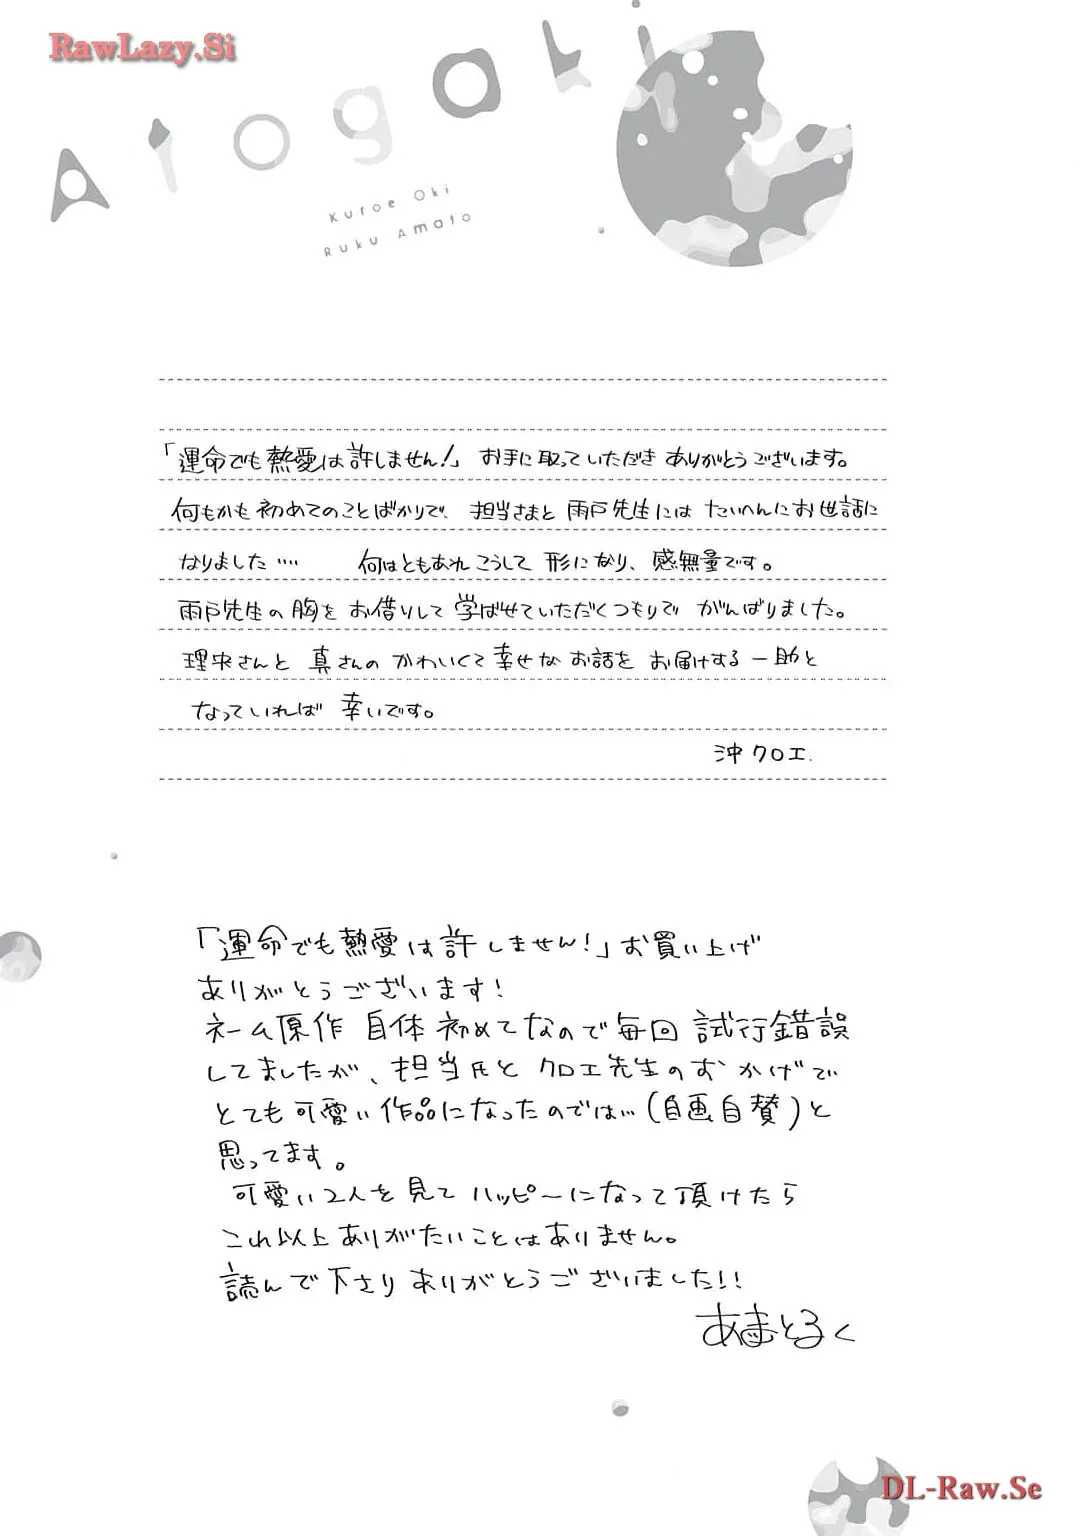 RawLazy.Si
Atogaki
Kuroe Oki
Ruku Amato
「運命でも熱愛は許しません!」 お手に取っていただき ありがとうございます。
何もかも初めてのことばかりで、 担当さまと 雨戸先生には たいへんにお世話に
なりました…… 何はともあれ こうして 形になり、感無量です。
雨戸先生の胸を お借りして 学ばせていただくつもりで がんばりました。
理央さんと 真さんの かわいくて幸せな お話を お届けする 一助と
なっていれば 幸いです。
沖クロエ.
「運命でも熱愛は許しません!」お買い上げ
ありがとうございます!
ネーム原作 自体 初めてなので毎回 試行錯誤
してましたが、担当氏と クロエ先生のおかげで
とても可愛い作品になったのでは…(自画自賛)と
思ってます。
可愛い2人を見て ハッピーになって頂けたら
これ以上ありがたいことはありません。
読んで下さりありがとうございました!!
あまとるく
DL-Raw.Se